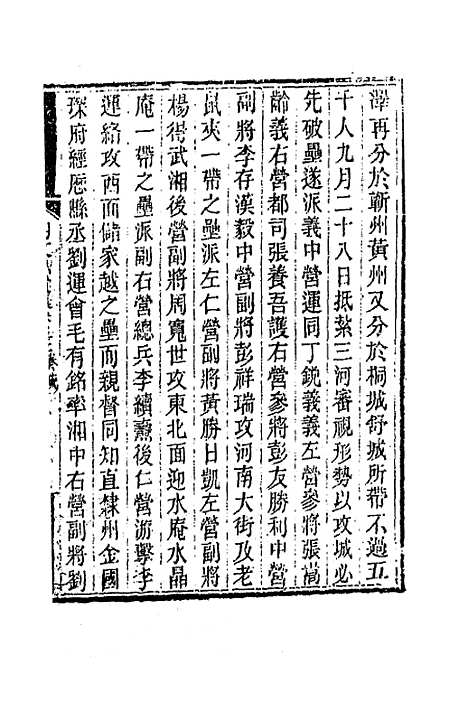 澤再分於蘄州黃州又分於桐城舒城所帶不過五
千人九月二十八日抵紮三河審視形勢以攻城必
先破壘遂派義中營運同丁銳義義左營參將張嵩
齡義右營都司張養吾護右營參將彭友勝利中營
副將李存漢毅中營副將彭祥瑞攻河南大街及老
鼠夾一帶之壘派左仁營副將黃勝日凱左營副將
楊得武湘後營副將周寬世攻東北面迎水庵水晶
庵一帶之壘派副右營總兵李續燾後仁營游擊李
運絡攻西面儲家越之壘而親督同知直隸州金國
琛府經歷縣丞劉運會毛有銘率湘中右營副將劉